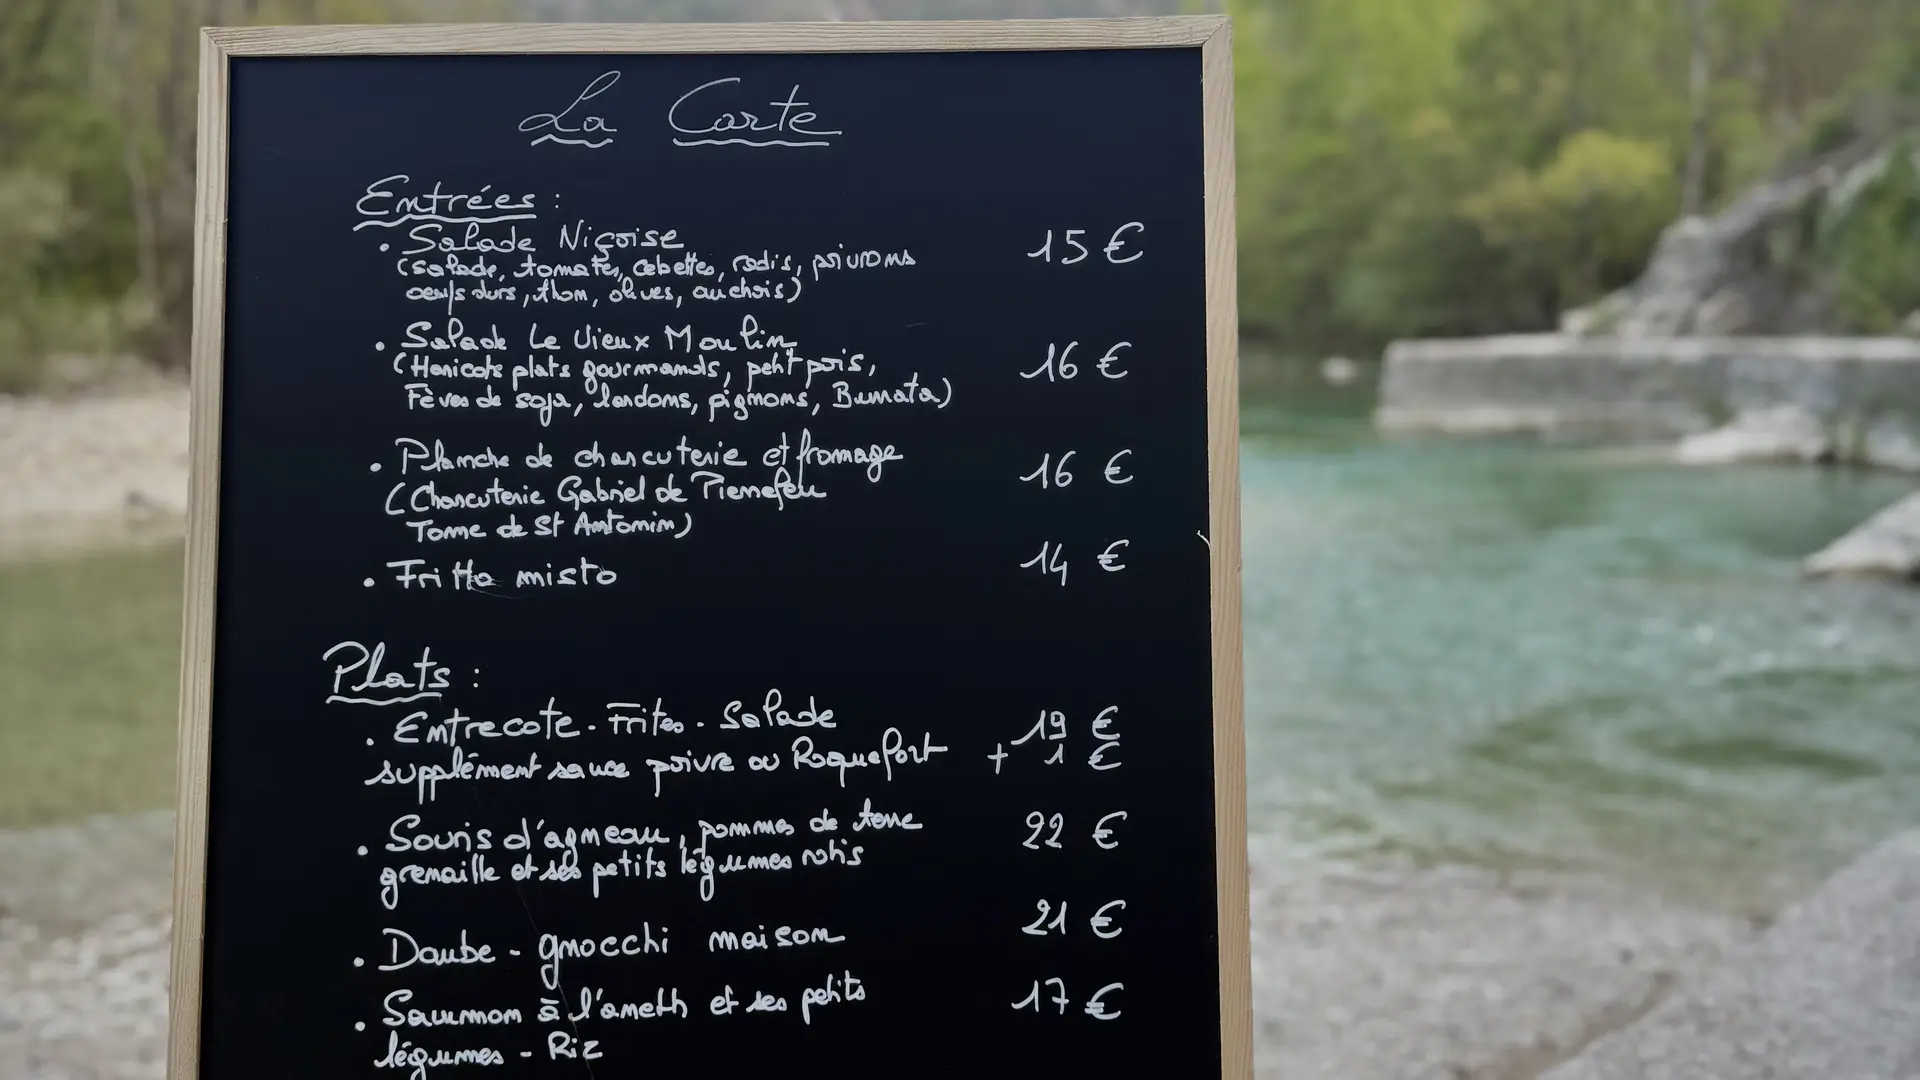 La Carte
Entrées :
• Salade Niçoise 15 €
(salade, tomates, cebettes, radis, poivrons
oeufs durs, thon, olives, anchois)
• Salade Le Vieux Moulin 16 €
(Haricots plats gourmands, petit pois,
Fèves de soja, lardons, pignons, Burrata)
• Planche de charcuterie et fromage 16 €
(Charcuterie Gabriel de Pierrefeu
Tomme de St Antonin)
• Fritto misto 14 €
Plats :
• Entrecote - Frites - Salade 19 €
supplément sauce poivre ou Roquefort + 1 €
• Souris d'agneau, pommes de terre 22 €
grenaille et ses petits légumes rotis
• Daube - gnocchi maison 21 €
• Saumon à l'aneth et ses petits 17 €
légumes - Riz